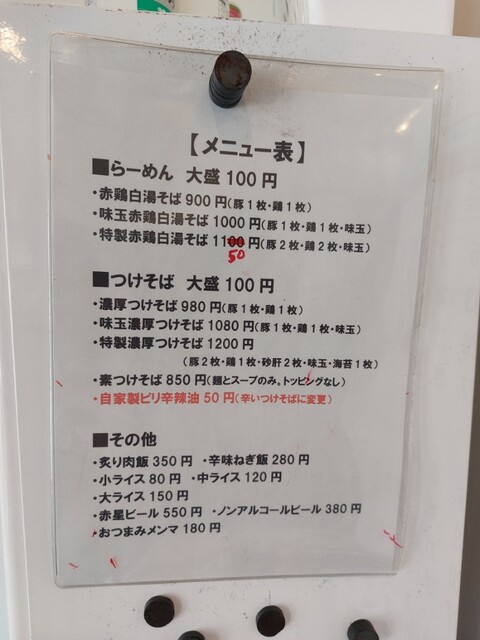 【メニュー表】
■らーめん 大盛100円
・赤鶏白湯そば900円(豚1枚・鶏1枚)
・味玉赤鶏白湯そば1000円(豚1枚・鶏1枚・味玉)
・特製赤鶏白湯そば1100円(豚2枚・鶏2枚・味玉)
50
■つけそば 大盛100円
・濃厚つけそば980円(豚1枚・鶏1枚)
・味玉濃厚つけそば1080円(豚1枚・鶏1枚・味玉)
・特製濃厚つけそば1200円
(豚2枚・鶏1枚・砂肝2枚・味玉・海苔1枚)
・素つけそば850円(麺とスープのみ。トッピングなし)
・自家製ピリ辛辣油50円(辛いつけそばに変更)
■その他
・炙り肉飯350円 ・辛味ねぎ飯280円
・小ライス80円 ・中ライス120円
・大ライス150円
・赤星ビール550円 ・ノンアルコールビール380円
・おつまみメンマ180円